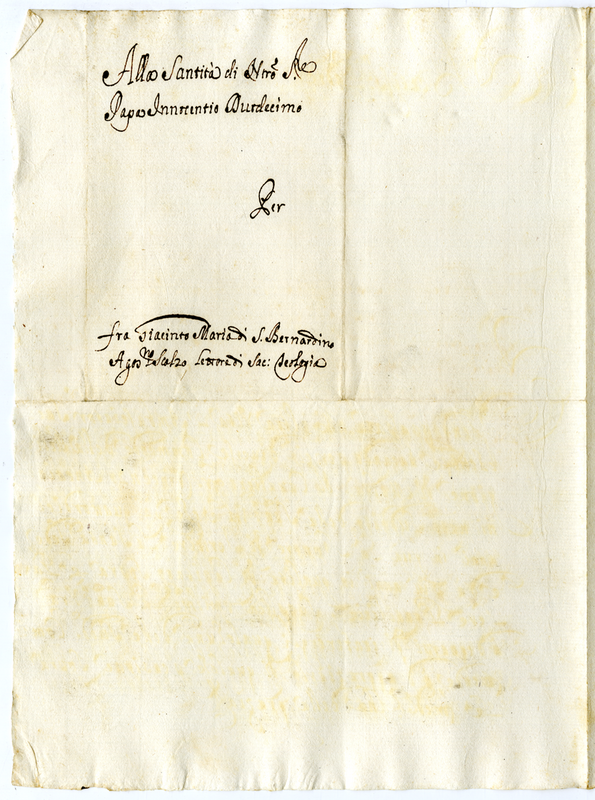 Alla Santità di Ntrõ S.re
Papa Innocentio Duodecimo
Per
fra Giacinto Maria di S. Bernardino
Agos.no Scalzo Lettore di Sac: Teologia